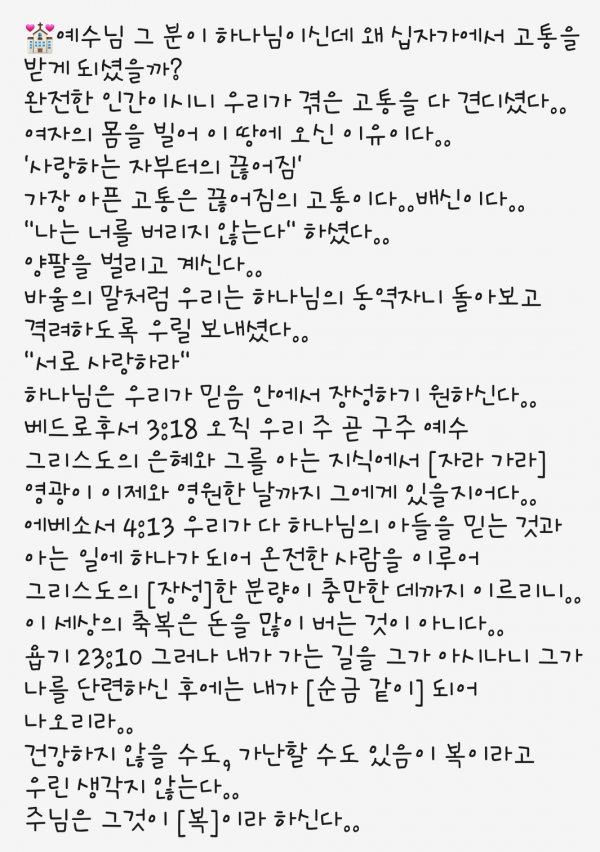 💒예수님 그 분이 하나님이신데 왜 십자가에서 고통을
받게 되셨을까?
완전한 인간이시니 우리가 겪은 고통을 다 견디셨다..
여자의 몸을 빌어 이 땅에 오신 이유이다..
'사랑하는 자부터의 끊어짐'
가장 아픈 고통은 끊어짐의 고통이다..배신이다..
"나는 너를 버리지 않는다" 하셨다..
양팔을 벌리고 계신다..
바울의 말처럼 우리는 하나님의 동역자니 돌아보고
격려하도록 우릴 보내셨다..
"서로 사랑하라"
하나님은 우리가 믿음 안에서 장성하기 원하신다..
베드로후서 3:18 오직 우리 주 곧 구주 예수
그리스도의 은혜와 그를 아는 지식에서 [자라 가라]
영광이 이제와 영원한 날까지 그에게 있을지어다..
에베소서 4:13 우리가 다 하나님의 아들을 믿는 것과
아는 일에 하나가 되어 온전한 사람을 이루어
그리스도의 [장성]한 분량이 충만한 데까지 이르리니..
이 세상의 축복은 돈을 많이 버는 것이 아니다..
욥기 23:10 그러나 내가 가는 길을 그가 아시나니 그가
나를 단련하신 후에는 내가 [순금 같이] 되어
나오리라..
건강하지 않을 수도, 가난할 수도 있음이 복이라고
우린 생각지 않는다..
주님은 그것이 [복]이라 하신다..